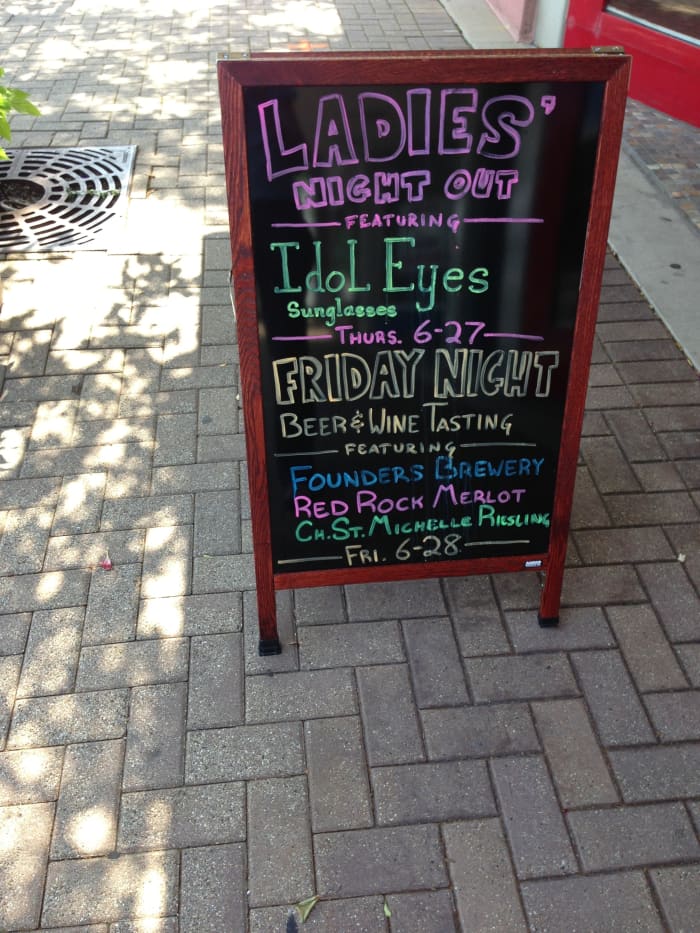 LADIES'
NIGHT OUT
FEATURING
IdoL Eyes
Sunglasses
THURS. 6-27
FRIDAY NIGHT
BEER & WINE TASTING
FEATURING
FOUNDERS BREWERY
RED ROCK MERLOT
CH. ST. MICHELLE RIESLING
FRI. 6-28